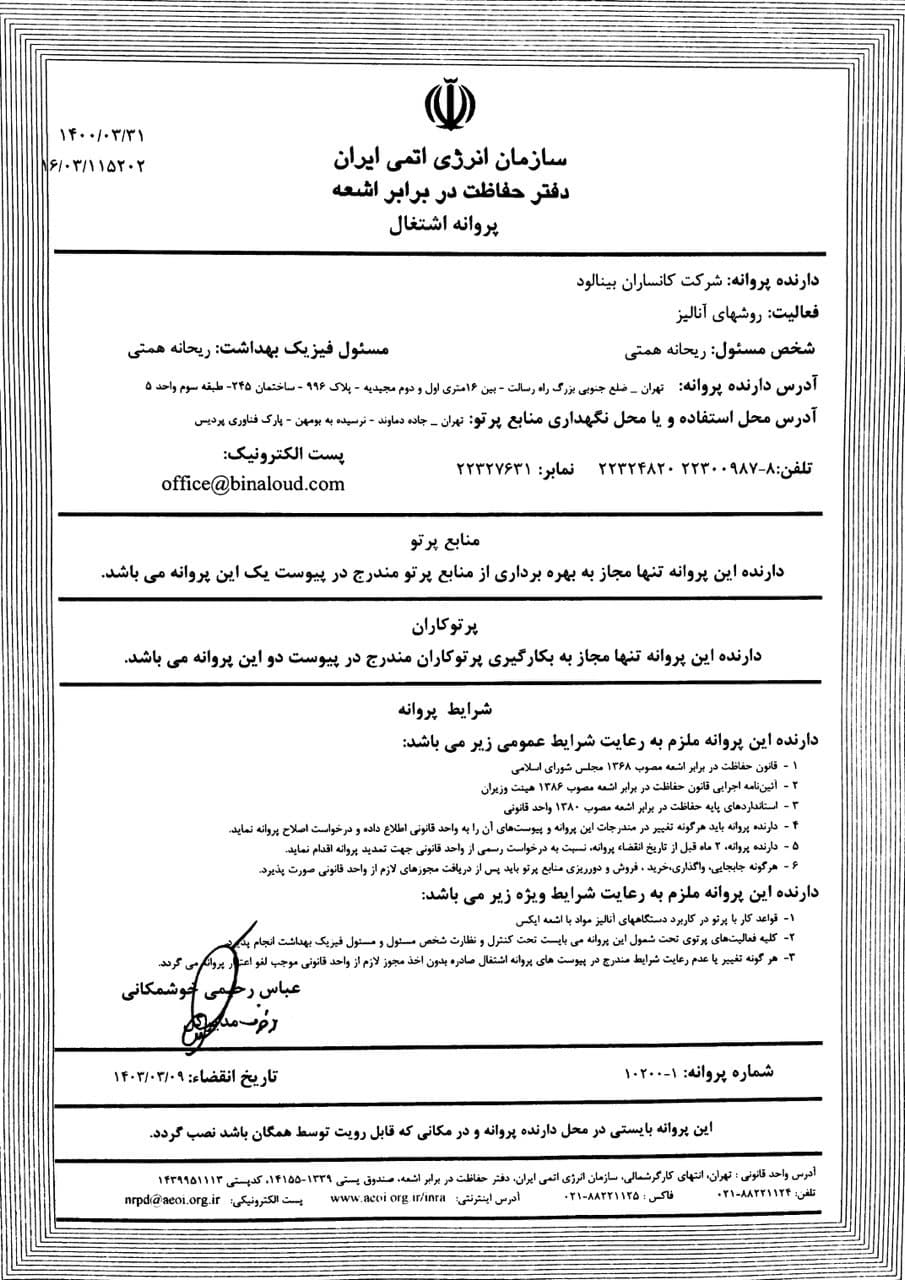 ۱۴۰۰/۰۳/۳۱
۱۶/۰۳/۱۱۵۲۰۲
سازمان انرژی اتمی ایران
دفتر حفاظت در برابر اشعه
پروانه اشتغال
دارنده پروانه: شرکت کانساران بینالود
فعالیت: روشهای آنالیز
شخص مسئول: ریحانه همتی مسئول فیزیک بهداشت: ریحانه همتی
آدرس دارنده پروانه: تهران _ ضلع جنوبی بزرگ راه رسالت - بین ۱۶متری اول و دوم مجیدیه - پلاک ۹۹۶ - ساختمان ۲۴۵- طبقه سوم واحد ۵
آدرس محل استفاده و یا محل نگهداری منابع پرتو: تهران _ جاده دماوند - نرسیده به بومهن - پارک فناوری پردیس
تلفن:۸-۲۲۳۰۰۹۸۷ ۲۲۳۲۴۸۲۰ نمابر: ۲۲۳۲۷۶۳۱ پست الکترونیک:
office@binaloud.com
منابع پرتو
دارنده این پروانه تنها مجاز به بهره برداری از منابع پرتو مندرج در پیوست یک این پروانه می باشد.
پرتوکاران
دارنده این پروانه تنها مجاز به بکارگیری پرتوکاران مندرج در پیوست دو این پروانه می باشد.
شرایط پروانه
دارنده این پروانه ملزم به رعایت شرایط عمومی زیر می باشد:
۱ - قانون حفاظت در برابر اشعه مصوب ۱۳۶۸ مجلس شورای اسلامی
۲ - آئین‌نامه اجرایی قانون حفاظت در برابر اشعه مصوب ۱۳۸۶ هیئت وزیران
۳ - استانداردهای پایه حفاظت در برابر اشعه مصوب ۱۳۸۰ واحد قانونی
۴ - دارنده پروانه باید هرگونه تغییر در مندرجات این پروانه و پیوست‌های آن را به واحد قانونی اطلاع داده و درخواست اصلاح پروانه نماید.
۵ - دارنده پروانه، ۲ ماه قبل از تاریخ انقضاء پروانه، نسبت به درخواست رسمی از واحد قانونی جهت تمدید پروانه اقدام نماید.
۶ - هرگونه جابجایی، واگذاری،خرید ، فروش و دورریزی منابع پرتو باید پس از دریافت مجوزهای لازم از واحد قانونی صورت پذیرد.
دارنده این پروانه ملزم به رعایت شرایط ویژه زیر می باشد:
۱- قواعد کار با پرتو در کاربرد دستگاههای آنالیز مواد با اشعه ایکس
۲- کلیه فعالیت‌های پرتوی تحت شمول این پروانه می بایست تحت کنترل و نظارت شخص مسئول و مسئول فیزیک بهداشت انجام پذیرد.
۳- هر گونه تغییر یا عدم رعایت شرایط مندرج در پیوست های پروانه اشتغال صادره بدون اخذ مجوز لازم از واحد قانونی موجب لغو اعتبار پروانه می گردد.
عباس رحیمی خوشمکانی
شماره پروانه: ۱-۱۰۲۰۰ تاریخ انقضاء: ۱۴۰۳/۰۳/۰۹
این پروانه بایستی در محل دارنده پروانه و در مکانی که قابل رویت توسط همگان باشد نصب گردد.
آدرس واحد قانونی : تهران، انتهای کارگرشمالی، سازمان انرژی اتمی ایران، دفتر حفاظت در برابر اشعه، صندوق پستی ۱۳۳۹-۱۴۱۵۵، کدپستی ۱۴۳۹۹۵۱۱۱۳
تلفن: ۸۸۲۲۱۱۲۴-۰۲۱ فاکس : ۸۸۲۲۱۱۲۵-۰۲۱ آدرس اینترنتی: www.aeoi.org.ir/inra پست الکترونیکی: nrpd@aeoi.org.ir